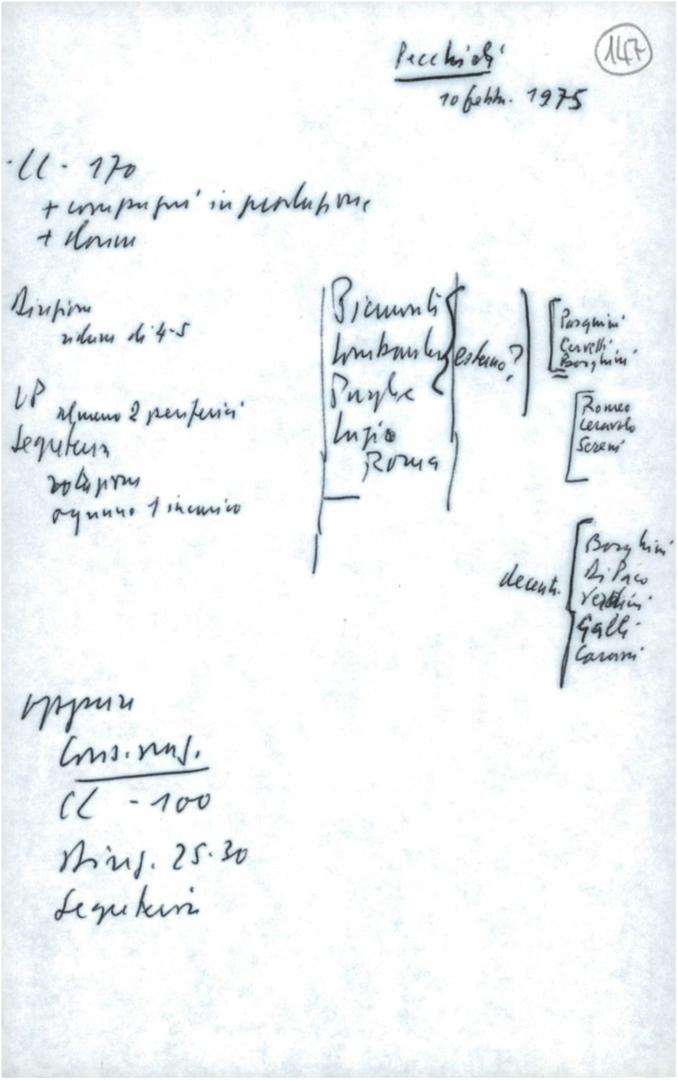 147
Pecchioli
10 febbr. 1975
CC - 170
+ compagni in produzione
+ donne
Direzione
ridurre di 4-5
UP almeno 2 periferici
Segreteria
ognuno 1 incarico
Piemonte
Lombardia
Puglie
Lazio
Roma
esterno?
Pasquini
Cervetti
Borghini
Romeo
Ceravolo
Sereni
decentr.
Borghini
Di Paco
Verdini
Galli
oppure
Cons. naz.
CC - 100
Direz. 25-30
Segreteria